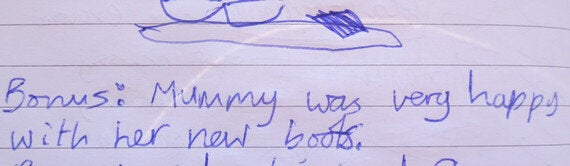 Bonus: Mummy was very happy
with her new boots.